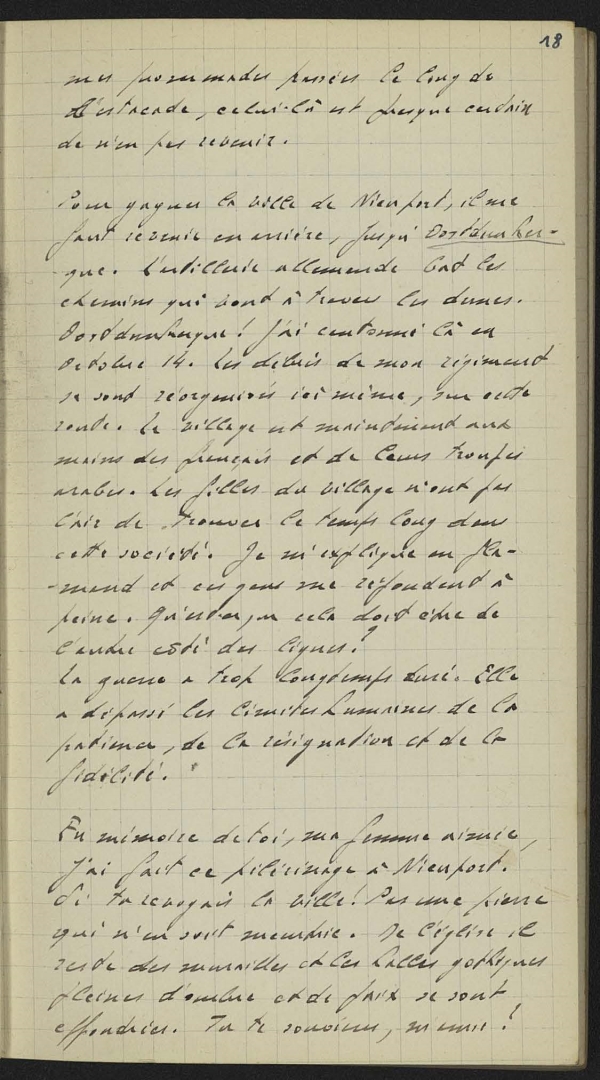 18
mes promenades passées le long de
l'estacade, celui-là est presque certain
de n'en pas revenir.
Pour gagner la ville de Nieuport, il me
faut revenir en arrière, jusqu'à Oostdunker-
que. L'artillerie allemande bat les
chemins qui vont à travers les dunes.
Oostdunkerque! J'ai cantonné là en
octobre 14. Les débris de mon régiment
se sont réorganisés ici même, sur cette
route. Le village est maintenant aux
mains des français et de leurs troupes
arabes. Les filles du village n'ont pas
l'air de trouver le temps long dans
cette société. Je m'explique en fla-
-mand et ces gens me répondent à
peine. Qu'est-ce que cela doit être de
l'autre côté des lignes?
La guerre a trop longtemps duré. Elle
a dépassé les limites humaines de la
patience, de la résignation et de la
fidélité.
En mémoire de toi, ma femme aimée,
j'ai fait ce pèlerinage à Nieuport.
Si tu revoyais la ville! Pas une pierre
qui n'en soit meurtrie. De l'église il
reste des murailles et les halles gothiques
pleines d'ombre et de paix se sont
effondrées. Tu te souviens, m'amie!